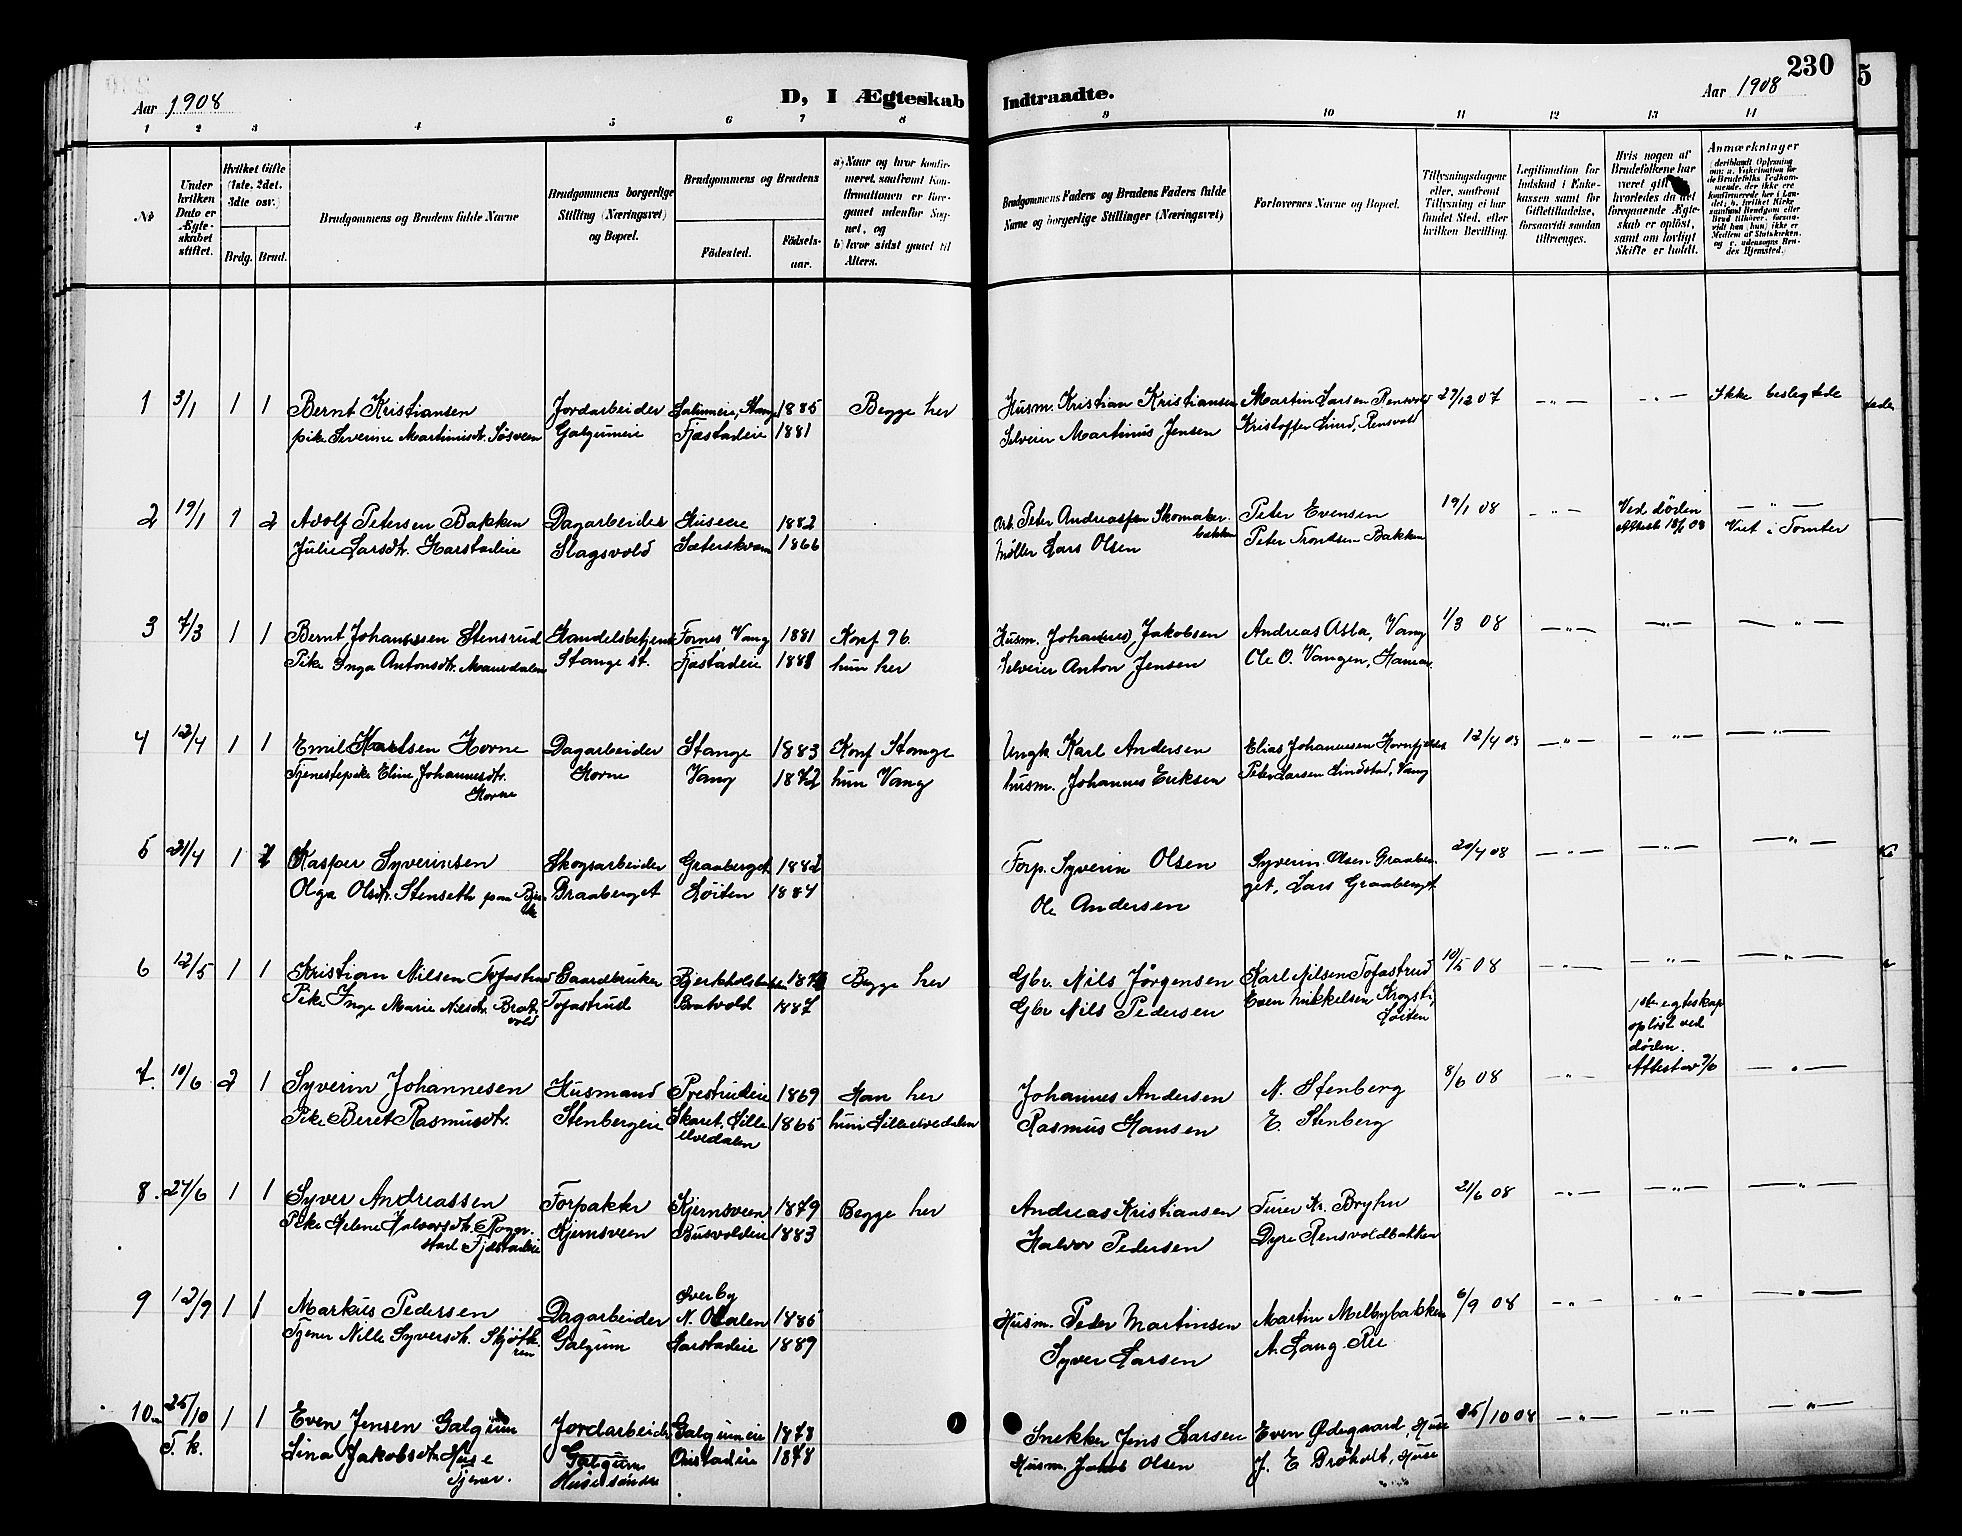 230
5
Aar 1908
D, I Ægteskab Indtraadte.
Aar 1908
1 2 3 4 5 6 7 8 9 10 11 12 13 14
No
Under hvilken Dato er Ægteskabet stiftet.
Hvilket Gifte (1ste, 2det, 3die osv.)
Brdg. Brud.
Brudgommens og Brudens fulde Navne
Brudgommens borgerlige Stilling (Næringsvei) og Bopæl.
Brudgommens og Brudens
Födested.
Födsels-aar.
a) Naar og hvor konfirmeret, saafremt Konfirmationen er foregaaet udenfor Sognet, og
b) hvor sidst gaaet til Alters.
Brudgommens Faders og Brudens Faders fulde Navne og borgerlige Stillinger (Næringsvei)
Forlovernes Navne og Bopæl.
Tillysningsdagene eller, saafremt Tillysning ei har fundet Sted, efter hvilken Bevilling.
Legitimation for Indskud i Enkekassen samt for Giftetilladelse, forsaavidt saadan tiltrænges.
Hvis nogen af Brudefolkene har været gift hvorledes da det foregaaende Ægteskab er oplöst, samt om lovligt Skifte er holdt.
Anmærkninger
1 3/1 1 1 Bernt Kristiansen Jordarbeider Stange 1885 Begge her Husm. Kristian Kristiansen Martin Larsen Rensvold 29/12 07 Ikke beslegtede
pike Severine Martinusdt. Løsveen Galgumeie Fjæstadeie 1881 Selveier Martinus Jensen Kristoffer Lund, Rensvold
2 19/1 1 2 Adolf Petersen Bakken Dagarbeider Huseeie 1882 Arb. Peter Andreassen Skomakerbakken Peter Evensen 19/1 08 Ved døden
Julie Larsdt. Harstadeie Slagsvold Sæterskvern 1866 Møller Lars Olsen Peter Trondsen Bakken Attest 18/1 08 Viet i Tomter
3 7/3 1 1 Bernt Johannessen Stensrud Handelsbetjent Fornes, Vang 1881 Konf 96. Husm. Johannes Jakobsen Andreas Asla, Vang 1/3 08
Pike Inga Antonsdt. Maursdalen Stange st. Fjæstadeie 1881 hun her Selveier Anton Jensen Ole O. Vangen, Hamar
4 12/4 1 1 Emil Karlsen Horne Dagarbeider Stange 1883 Konf Stange Ungk Karl Andersen Elias Johannessen 12/4 08
Tjenestepike Eline Johannesdt. Horne Horne Vang 1872 hun Vang husm. Johannes Eriksen Peter Larsen Lindstad, Vang
5 21/4 1 Kasper Syverinsen Skogsarbeider Graaberget 1882 Forp. Syverin Olsen Syverin Olsen Graaberget, Lars Graaberget 20/4 08
Olga Olsdt. Stenseth Graaberget Løiten 1884 Ole Andersen
6 12/5 1 1 Kristian Nilsen Tofastrud Gaardbruker 187 Begge her Gbr. Nils Jørgensen Karl Nilsen Tofastrud 10/5 08
Pike Inge Marie Nilsdt. Bratvold Tofastrud Bratvold 1887 Gbr Nils Pedersen Even Mikkelsen Løiten
7. 10/6 2 1 Syverin Johannesen Husmand Prestrudeie 1869 Han her Johannes Andersen N. Stenberg 8/6 08 1ste egteskap opløst ved døden. Attest av 9/6
Pike Beret Rasmusdt. Stenbergeie Skaret, Lille Elvedalen 1865 hun Lilleelvedalen Rasmus Hansen E. Stenberg
8. 24/6 1 1 Syver Andreassen Forpakter Kjernsveen 1879 Begge her Andreas Kristiansen Kr. Bryhn 21/6 08
Pike Helene Halvorsdt. Rogerstad Fjæstadeie Kjernsveen Busvoldeie 1883 Halvor Pedersen Dyre Rensvoldbakken
9 12/9 1 1 Markus Pedersen Dagarbeider Øverby N. Odalen 1885 Husm. Peder Martinsen Martin Melbybakken 6/9 08
Tjener Nille Syversdt. Galgum Harstadeie 1889 Syver Larsen A. Lang-Ree
10 25/10 1 1 Even Jensen Galgum Jordarbeider Galgumeie 1878 Snekker Jens Larsen Even Ødegaard, Huse 25/10 08
T. k. Lina Jakobsdt. Huse Tjener. Galgum Husesøndre Onstadeie 1878 Husm. Jakob Olsen J. E Brøholt, Huse